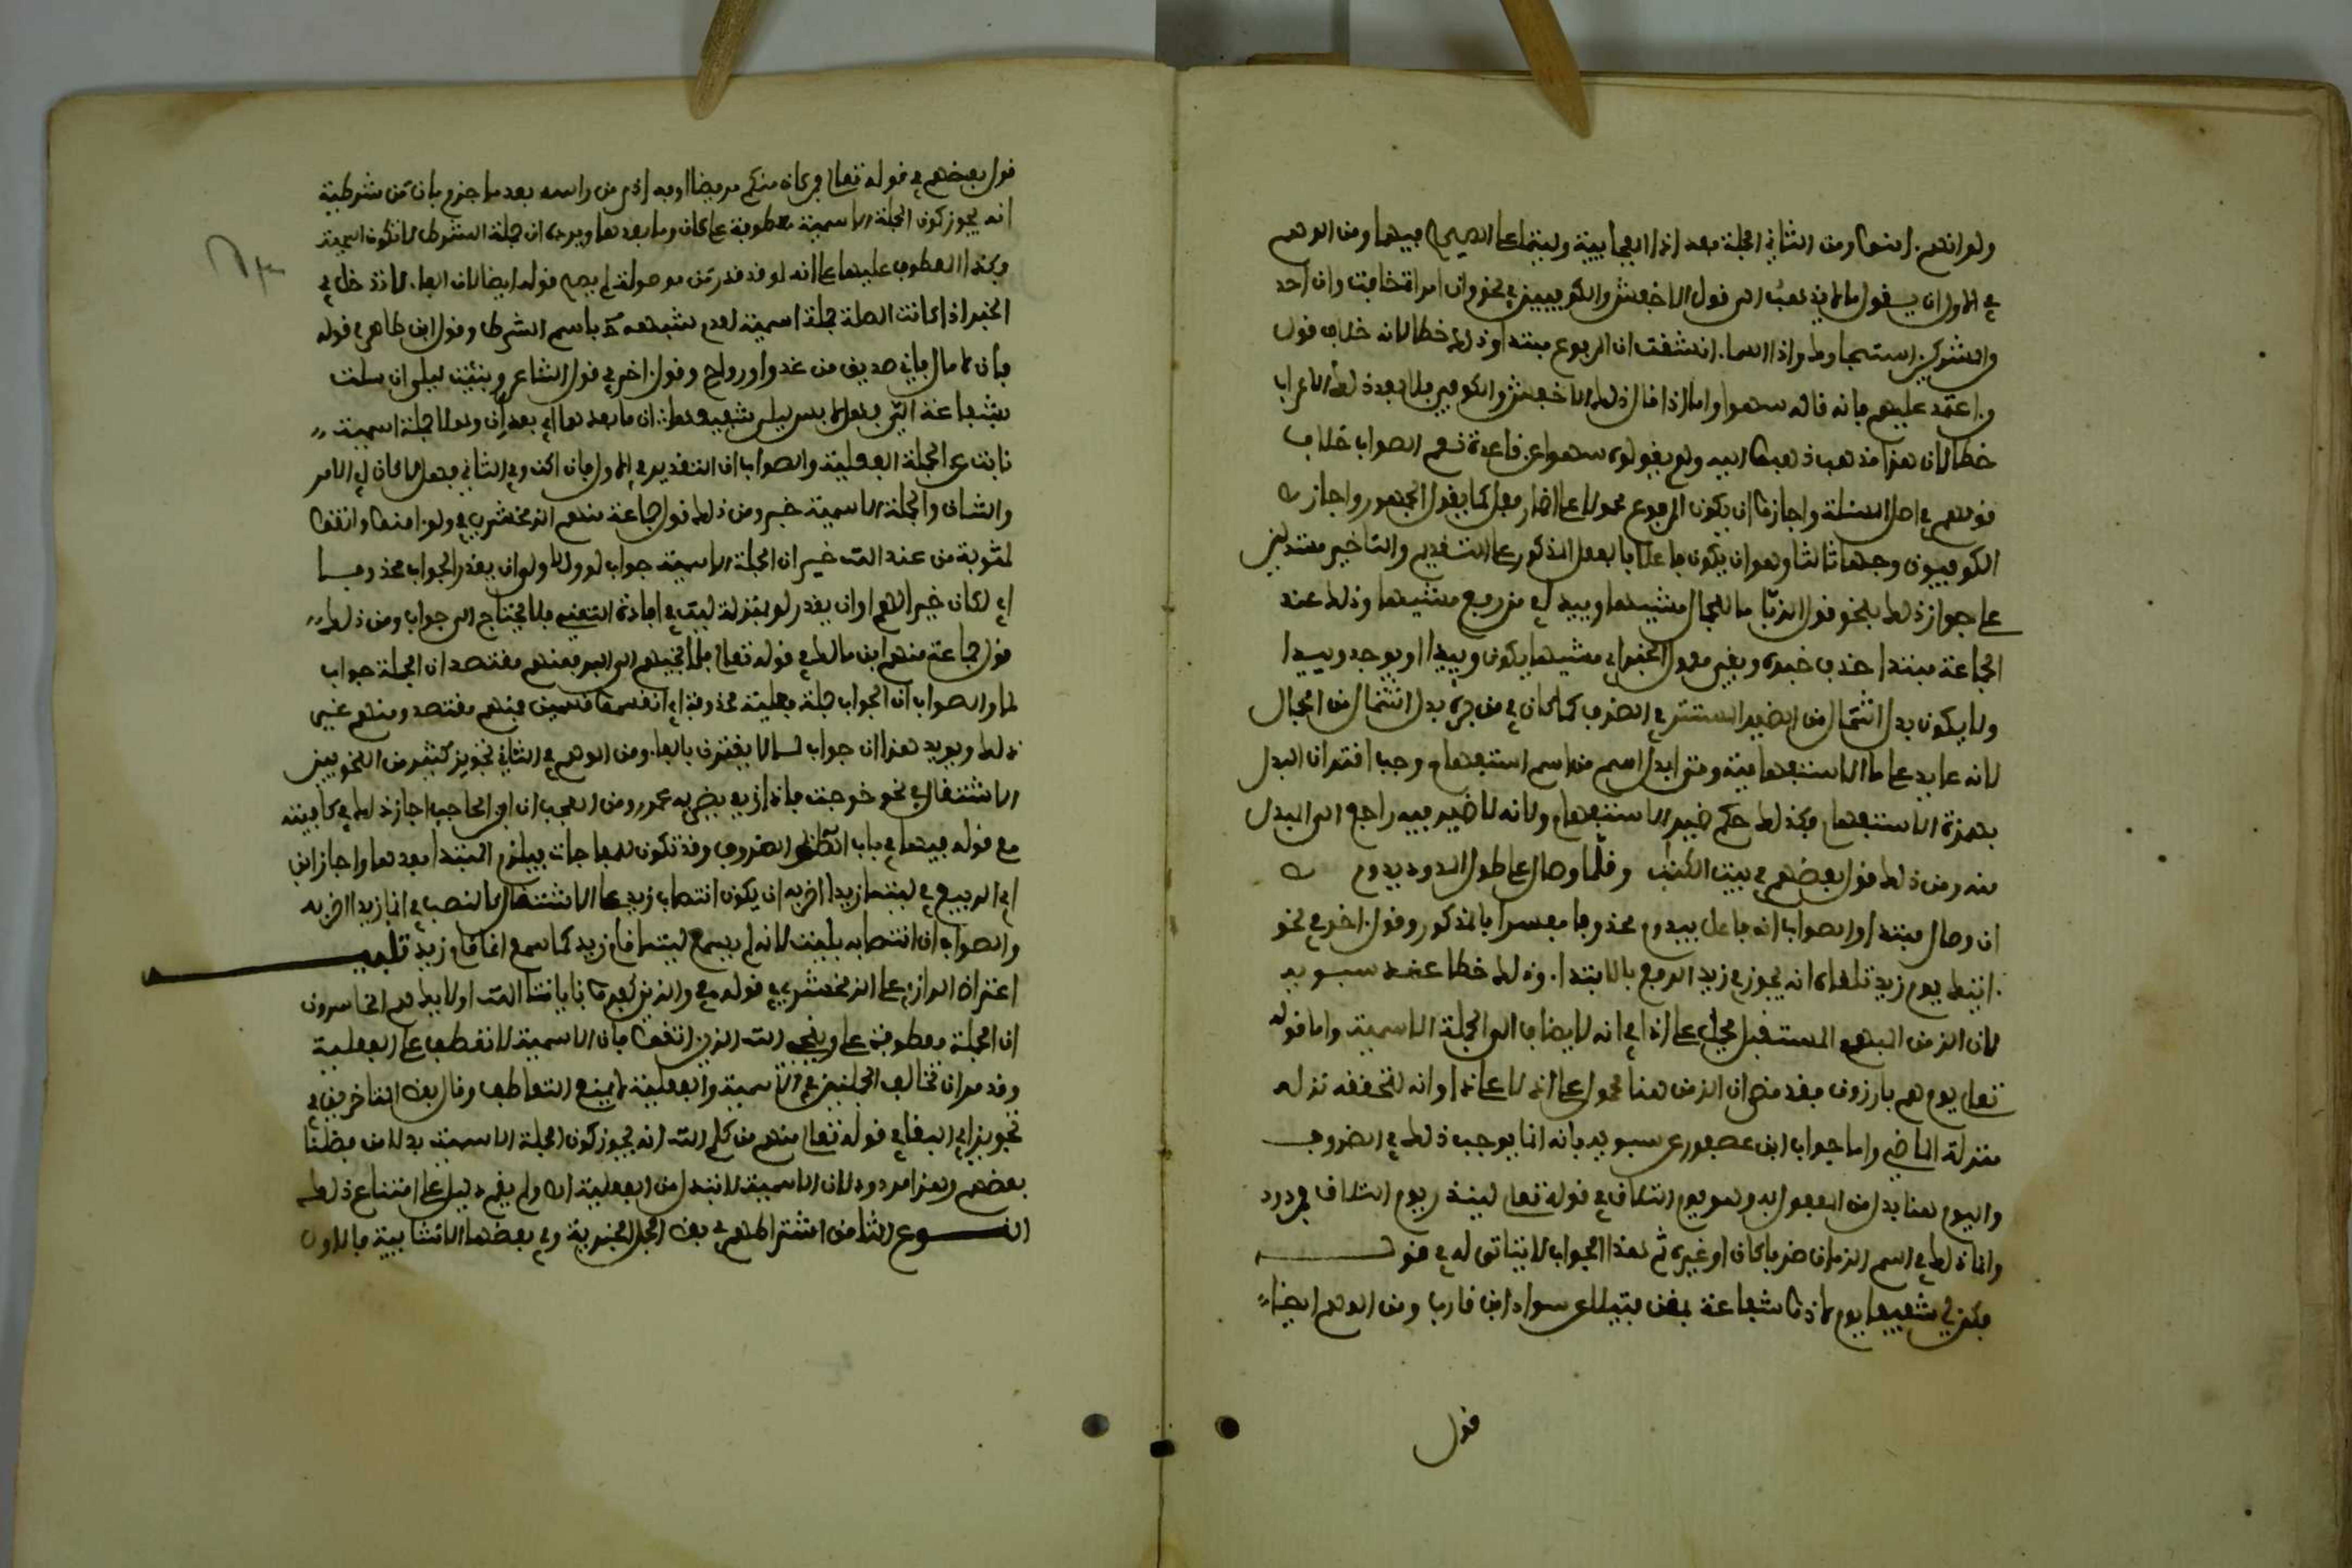 ولو انهم ءامنوا ومن الثاني الجملة بعد اذا الفجاءية وليتما على الصحيح فيهما ومن الوهم
في الاول ان يقول من لا يذهب الى قول الاخفش والكوفيين في نحو وان امراة خافت وان احد
من المشركين استجارك واذا السماء انشقت ان المرفوع مبتدا وذلك خطا لانه خلاف قول
من اعتمد عليهم فانه قاله سهوا واما اذا قال ذلك الاخفش والكوفي فلا يعد ذلك الاعراب
خطا لان هذا مذهب ذهبوا اليه ولم يقولوه سهوا عن قاعدة نعم الصواب خلاف
قولهم في اصل المسئلة واجازوا ان يكون المرفوع محمولا على اضمار فعل كما يقول الجمهور واجاز
الكوفيون وجها ثالثا وهو ان يكون فاعلا بالفعل المذكور على التقديم والتاخير مستدلين
على جواز ذلك بنحو قول الزبا ما للجمال مشيها وييدا في من رفع مشيها وذلك عند
الجماعة مبتدا حذف خبره وبقي معمول الخبر اي مشيها يكون وييدا او يوجد وييدا
ولا يكون بدل اشتمال من الضمير المستتر في الظرف كما كان في من جره بدل اشتمال من الجمال
لانه عايد على ما الاستفهامية ومتى ابدل اسم من اسم استفهام وجب اقتران البدل
بهمزة الاستفهام فكذلك حكم ضمير الاستفهام ولانه لا ضمير فيه راجع الى المبدل
منه ومن ذلك قول بعضهم في بيت الكتاب وقلما وصال على طول الصدود يدوم
ان وصال مبتدا والصواب انه فاعل بيدوم محذوفا مفسرا بالمذكور وقول ءاخر في نحو
ءاتيك يوم زيد تلقاه انه يجوز في زيد الرفع بالابتداء وذلك خطا عند سيبويه
لان الزمن المبهم المستقبل يحمل على اذا في انه لا يضاف الى الجملة الاسمية واما قوله
تعلى يوم هم بارزون فقد مضى ان الزمن هنا محمول على اذ لا على اذا وانه لتحققه نزل
منزلة الماضي واما جواب ابن عصفور عن سيبويه بانه انما يوجب ذلك في الظروف
واليوم هنا بدل من المفعول به وهو يوم التلاق في قوله تعلى لينذر يوم التلاق فمردود
وانما ذلك في اسم الزمان ظرفا كان او غيره ثم هذا الجواب لا يتاتى له في قوله
فكن لي شفيعا يوم لا ذو شفاعة بمغن فتيلا عن سواد ابن قارب ومن الوهم ايضا
قول
قول بعضهم في قوله تعلى فمن كان منكم مريضا او به اذى من راسه بعد ما جزم بان من شرطية
انه يجوز كون الجملة الاسمية معطوفة على كان وما بعدها ويرده ان جملة الشرط لا تكون اسمية
وكذا المعطوف عليها على انه لو قدر من موصولة لم يصح قوله ايضا لان الفاء لا تدخل في
الخبر اذا كانت الصلة جملة اسمية لعدم شبهه حينئذ باسم الشرط وقول ابن طاهر في قوله
فان لا مال فاني صديق من غدو او رواح وقول ءاخر في قول الشاعر ونبئت ليلى ارسلت
بشفاعة الي فهلا نفس ليلى شفيعها ان ما بعدها اي بعد ان وهلا جملة اسمية
نابت عن الجملة الفعلية والصواب ان التقدير في الاول فان اكن وفي الثاني فهلا كان اي الامر
والشان والجملة الاسمية خبر ومن ذلك قول جماعة منهم الزمخشري في ولو ءامنوا واتقوا
لمثوبة من عند الله خير ان الجملة الاسمية جواب لو والاولى ان يقدر الجواب محذوفا
اي لكان خيرا لهم او ان يقدر لو بمنزلة ليت في افادة التمني فلا يحتاج الى جواب ومن ذلك
قول جماعة منهم ابن مالك في قوله تعلى فلما نجيهم الى البر فمنهم مقتصد ان الجملة جواب
لما والصواب ان الجواب جملة فعلية محذوفة اي انقسموا قسمين فمنهم مقتصد ومنهم غير
ذلك ويويد هذا ان جواب لما لا يقترن بالفاء ومن الوهم في الثاني تجويز كثير من النحويين
الاشتغال في نحو خرجت فاذا زيد يضربه عمرو ومن العجب ان ابن الحاجب اجاز ذلك في كافيته
مع قوله فيها في باب الظروف وقد تكون للمفاجاة فيلزم المبتدا بعدها واجاز ابن
ابي الربيع في ليتما زيدا اضربه ان يكون انتصاب زيد على الاشتغال كالنصب في انما زيدا اضربه
والصواب ان انتصابه بليت لانه لم يسمع ليتما قام زيد كما سمع انما قام زيد تنبيه
اعترض الرازي على الزمخشري في قوله والذين كفروا بايات الله اوليك هم الخاسرون
ان الجملة معطوفة على وينجي الله الذين اتقوا بان الاسمية لا تعطف على الفعلية
وقد مر ان تخالف الجملتين في الاسمية والفعلية لا يمنع التعاطف وقال بعض المتاخرين في
تجويز ابي البقاء في قوله تعلى منهم من كلم الله انه يجوز كون الجملة الاسمية بدلا من فضلنا
بعضهم وهذا مردود لان الاسمية لا تبدل من الفعلية اه ولم يقم دليل على امتناع ذلك
النوع الثامن اشتراطهم في بعض الجمل الخبرية وفي بعضها الانشايية فالاول